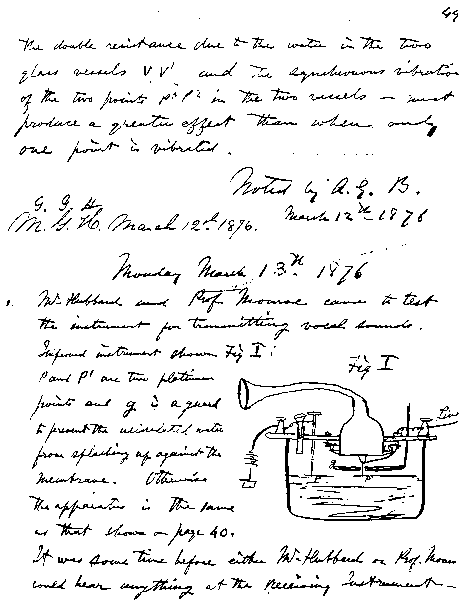 49
The double resistance due to the water in the two
glass vessels V, V' and the synchronous vibration
of the two points P' P² in the two vessels — must
produce a greater effect than when only
one point is vibrated.
Noted by A. G. B.
G. G. H.
M. G. H. March 12th 1876.
March 12th 1876
Monday March 13th 1876
1. Mr. Hubbard and Prof. Monroe came to test
the instrument for transmitting vocal sounds.
Improved instrument shown Fig I:
Fig I
P and P' are two platinum
points and g is a guard
to prevent the acidulated water
from splashing up against the
membrane. Otherwise
the apparatus is the same
as that shown on page 40.
Line
g
P
P'
It was some time before either Mr. Hubbard or Prof. Monroe
could hear anything at the receiving Instrument —